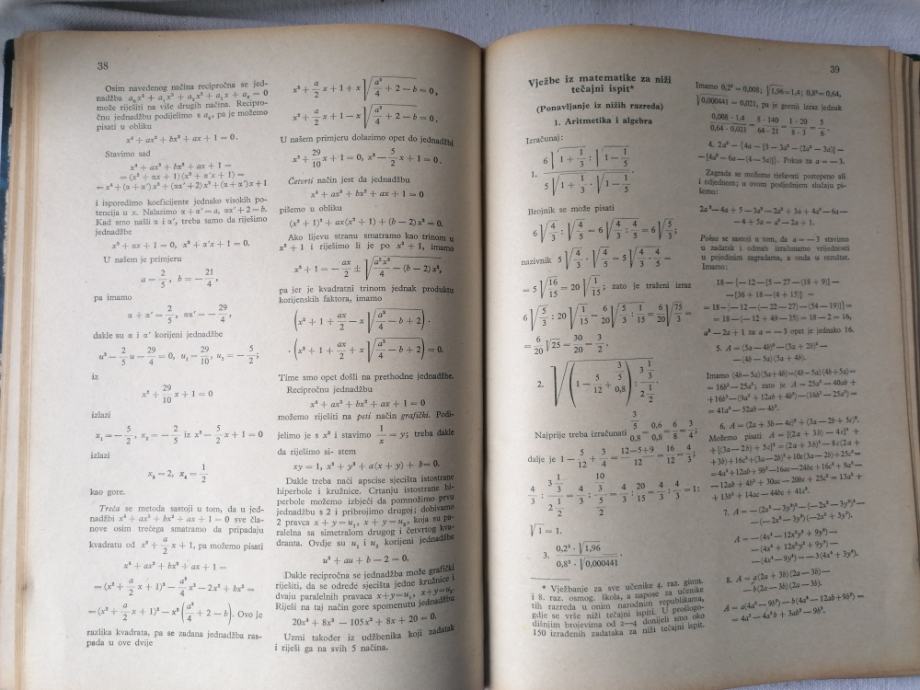 38
Osim navedenog načina recipročna se jed-
nadžba a₀x⁴ + a₁x³ + a₂x² + a₁x + a₀ = 0
može riješiti na više drugih načina. Recipro-
čnu jednadžbu podijelimo s a₀, pa je možemo
pisati u obliku
x⁴ + ax³ + bx² + ax + 1 = 0.
Stavimo sad
x⁴ + ax³ + bx² + ax + 1 =
= (x² + αx + 1) (x² + α'x + 1) =
= x⁴ + (α + α')x³ + (αα' + 2)x² + (α + α')x + 1
i isporedimo koeficijente jednako visokih po-
tencija u x. Nalazimo α + α' = a, αα' + 2 = b.
Kad smo našli α i α', treba samo da riješimo
jednadžbe
x² + αx + 1 = 0, x² + α'x + 1 = 0.
U našem je primjeru
a = 2/5, b = − 21/4,
pa imamo
α + α' = 2/5, αα' = − 29/4,
dakle su α i α' korijeni jednadžbe
u² − 2/5 u − 29/4 = 0, u₁ = 29/10, u₂ = − 5/2;
iz
x² + 29/10 x + 1 = 0
izlazi
x₁ = − 5/2, x₂ = − 2/5 iz x² − 5/2 x + 1 = 0
izlazi
x₃ = 2, x₄ = 1/2
kao gore.
Treća se metoda sastoji u tom, da u jed-
nadžbi x⁴ + ax³ + bx² + ax + 1 = 0 sve čla-
nove osim trećega smatramo da pripadaju
kvadratu od x² + a/2 x + 1, pa možemo pisati
x⁴ + ax³ + bx² + ax + 1 =
= (x² + a/2 x + 1)² − a²/4 x² − 2x² + bx² =
= (x² + a/2 x + 1)² − x² (a²/4 + 2 − b). Ovo je
razlika kvadrata, pa se zadana jednadžba ras-
pada u ove dvije
x² + a/2 x + 1 + x √(a²/4 + 2 − b) = 0,
x² + a/2 x + 1 − x √(a²/4 + 2 − b) = 0,
U našem primjeru dolazimo opet do jednadžbi
x² + 29/10 x + 1 = 0, x² − 5/2 x + 1 = 0.
Četvrti način jest da jednadžbu
x⁴ + ax³ + bx² + ax + 1 = 0
pišemo u obliku
(x² + 1)² + ax(x² + 1) + (b − 2) x² = 0.
Ako lijevu stranu smatramo kao trinom u
x² + 1 i riješimo li je po x² + 1, imamo
x² + 1 = − ax/2 ± √(a²x²/4 − (b − 2) x²,
pa jer je kvadratni trinom jednak produktu
korijenskih faktora, imamo
(x² + 1 + ax/2 − x √(a²/4 − b + 2)) ·
· (x² + 1 + ax/2 + x √(a²/4 − b + 2)) = 0.
Time smo opet došli na prethodne jednadžbe.
Recipročnu jednadžbu
x⁴ + ax³ + bx² + ax + 1 = 0
možemo riješiti na peti način grafički. Podi-
jelimo je s x² i stavimo 1/x = y; treba dakle
da riješimo si- stem
xy = 1, x² + y² + a(x + y) + b = 0.
Dakle treba naći apscise sjecišta istostrane
hiperbole i kružnice. Crtanju istostrane hi-
perbole možemo izbjeći da pomnožimo prvu
jednadžbu s 2 i pribrojimo drugoj; dobivamo
2 pravca x + y = u₁, x + y = u₂, koja su pa-
ralelna sa simetralom drugog i četvrtog kva-
dranta. Ovdje su u₁ i u₂ korijeni jednadžbe
u² + au + b − 2 = 0.
Dakle recipročna se jednadžba može grafički
riješiti, da se odrede sjecišta jedne kružnice i
dvaju paralelnih pravaca x + y = u₁, x + y = u₂.
Riješi na taj način gore spomenutu jednadžbu
20x⁴ + 8x³ − 105x² + 8x + 20 = 0.
Uzmi također iz udžbenika koji zadatak
i riješi ga na svih 5 načina.
39
Vježbe iz matematike za niži
tečajni ispit*
(Ponavljanje iz nižih razreda)
1. Aritmetika i algebra
Izračunaj:
1. 6 √(1 + 1/3) : √(1 − 1/5)
5 √(1 + 1/3) · √(1 − 1/5) .
Brojnik se može pisati
6 √(4/3) : √(4/5) = 6 √(4/3 : 4/5) = 6 √(5/3);
nazivnik 5 √(4/3) · √(4/5) = 5 √(4/3 · 4/5) =
= 5 √(16/15) = 20 √(1/15); zato je traženi izraz
6 √(5/3) : 20 √(1/15) = 6/20 √(5/3 : 1/15) = 6/20 √(75/3) =
= 6/20 √25 = 30/20 = 3/2.
2. √((1 − 5/12 + (3/5)/0,8) : (3 1/3)/(2 1/2)) .
Najprije treba izračunati (3/5)/0,8 = 0,6/0,8 = 6/8 = 3/4;
dalje je 1 − 5/12 + 3/4 = 12−5+9/12 = 16/12 = 4/3;
4/3 : (3 1/3)/(2 1/2) = 4/3 : (10/3)/(5/2) = 4/3 : 20/15 = 4/3 : 4/3 = 1:
√1 = 1.
3. 0,2³ · √1,96
0,8² · √0,000441 .
* Vježbanje za sve učenike 4. raz. gimn.
i 8. raz. osmog. škola, a napose za učenike
tih razreda u onim narodnim republikama,
gdje se vrše niži tečajni ispiti. U prošlogo-
dišnjim brojevima od 2—4 donijeli smo oko
150 izrađenih zadataka za niži tečajni ispit.
Imamo 0,2³ = 0,008; √1,96 = 1,4; 0,8² = 0,64,
√0,000441 = 0,021, pa je gornji izraz jednak
0,008 · 1,4/0,64 · 0,021 = 8 · 140/64 · 21 = 1 · 20/8 · 3 = 5/6.
4. 2a² − {4a − [5 − 3a² − (2a² − 3a)] −
− [4a² − 6a − (4 − 5a)]}. Pokus za a = − 3.
Zagrada se možemo riješavati postepeno ali
i odjednom; u ovom posljednjem slučaju pi-
šemo:
2a² − 4a + 5 − 3a² − 2a² + 3a + 4a² − 6a −
− 4 + 5a = a² − 2a + 1.
Pokus se sastoji u tom, da a = − 3 stavimo
u zadatak i odmah izračunamo vrijednosti
u pojedinim zagradama, a onda u rezultat.
Imamo:
18 − {− 12 − [5 − 27 − (18 + 9)] −
− [36 + 18 − (4 + 15)]} =
= 18 − {− 12 − (− 22 − 27) − (54 − 19)} =
= 18 − (− 12 + 49 − 35) = 18 − 2 = 16,
a² − 2a + 1 za a = − 3 opet je jednako 16.
5. A = (5a − 4b)² − (3a + 2b)² −
− (4b − 5a) (5a + 4b).
Imamo (4b − 5a) (5a + 4b) = (4b − 5a) (4b + 5a) =
= 16b² − 25a²; zato je A = 25a² − 40ab +
+ 16b² − (9a² + 12ab + 4b²) − (16b² − 25a²) =
= 41a² − 52ab − 4b².
6. A = (2a + 3b − 4c)² + (3a − 2b + 5c)².
Možemo pisati A = [(2a + 3b) − 4c]² +
+ [(3a − 2b) + 5c]² = (2a + 3b)² − 8c(2a +
+ 3b) + 16c² + (3a − 2b)² + 10c(3a − 2b) + 25c² =
= 4a² + 12ab + 9b² − 16ac − 24bc + 16c² + 9a² −
− 12ab + 4b² + 30ac − 20bc + 25c² = 13a² +
+ 13b² + 14ac − 44bc + 41c².
7. A = − (2x² − 3y³)² − (− 2x² − 3y³)² −
− (− 2x² − 3y³) (− 2x² + 3y³).
A = − (4x⁴ − 12x²y³ + 9y⁶) −
− (4x⁴ + 12x²y³ + 9y⁶) −
− (4x⁴ − 9y⁶) = − 3(4x⁴ + 3y⁶).
8. A = a(2a + 3b) (2a − 3b) −
− b(2a − 3b) (2a − 3b).
A = a(4a² − 9b²) − b(4a² − 12ab + 9b²) =
= 4a³ − 4a²b + 3ab² − 9b³.